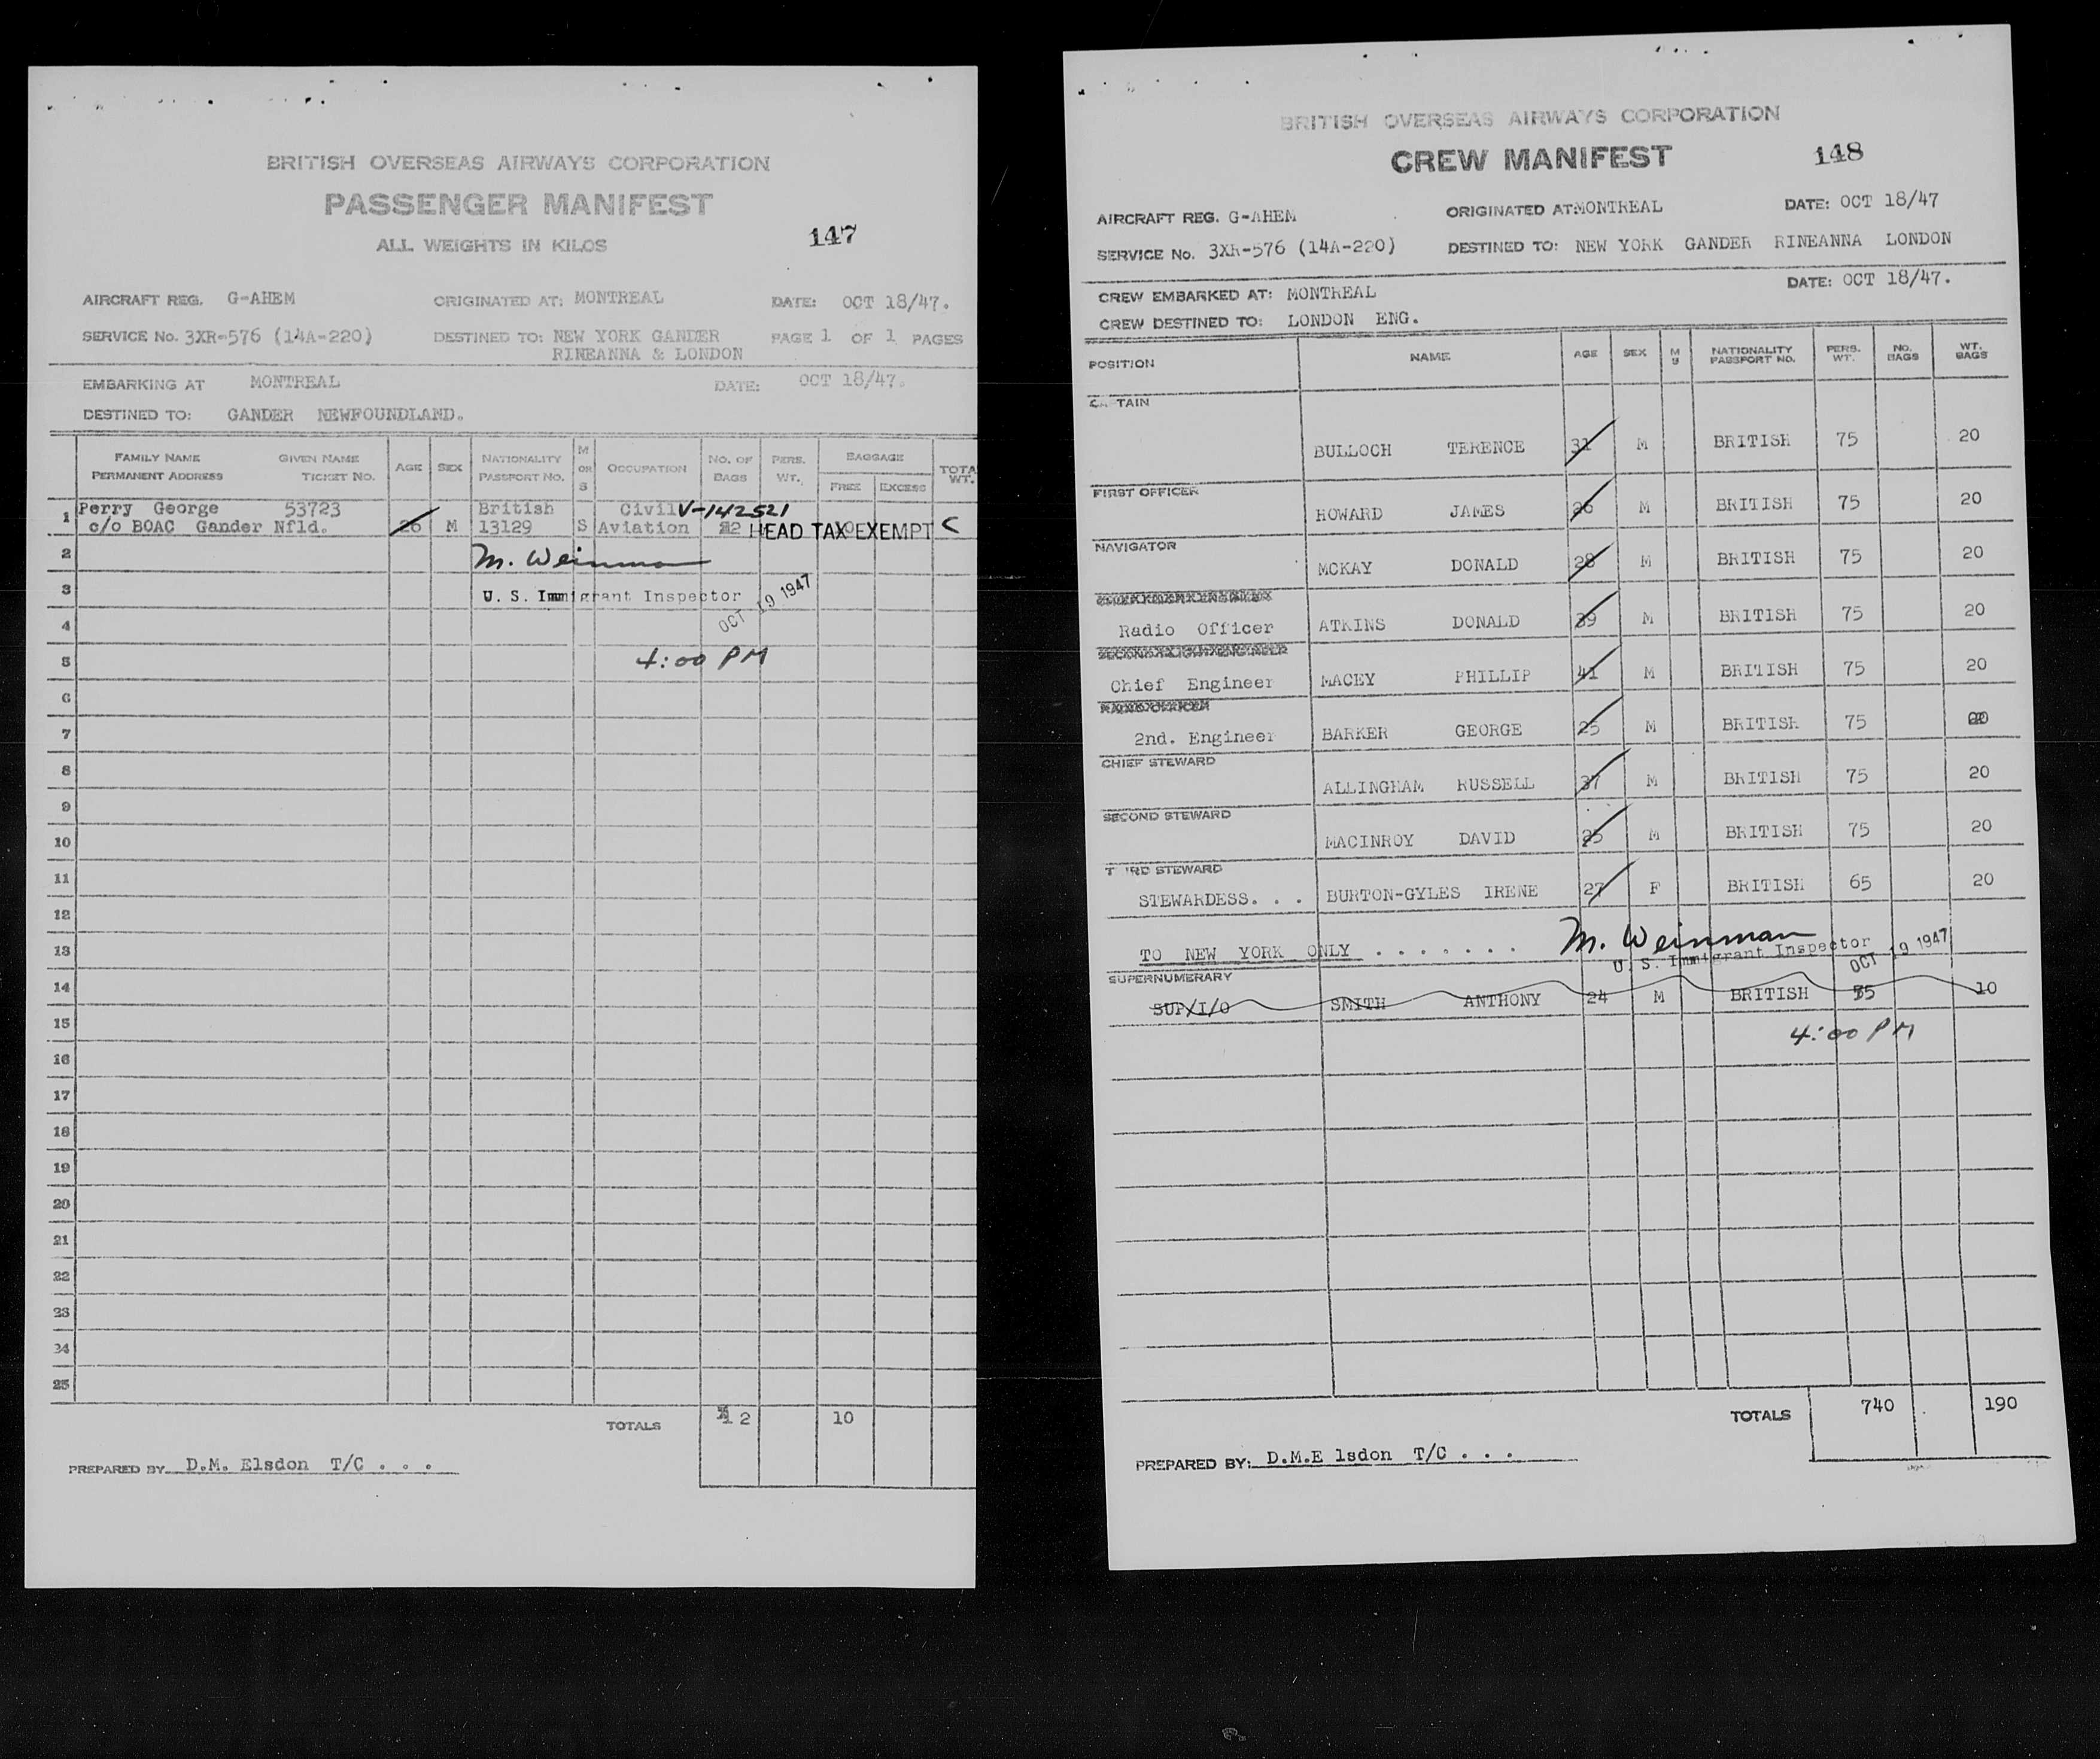 BRITISH OVERSEAS AIRWAYS CORPORATION
PASSENGER MANIFEST
ALL WEIGHTS IN KILOS
147
AIRCRAFT REG. G-AHEM ORIGINATED AT: MONTREAL DATE: OCT 18/47.
SERVICE No. 3XR-576 (14A-220) DESTINED TO: NEW YORK GANDER PAGE 1 OF 1 PAGES
RINEANNA & LONDON
EMBARKING AT MONTREAL DATE: OCT 18/47.
DESTINED TO: GANDER NEWFOUNDLAND.
FAMILY NAME GIVEN NAME AGE SEX NATIONALITY M OR S OCCUPATION NO. OF BAGS PERS. WT. BAGGAGE TOTA WT.
PERMANENT ADDRESS TICKET NO. PASSPORT NO. FREE EXCESS
1 Perry George 53723 British Civil V-142521
c/o BOAC Gander Nfld. 26 M 13129 S Aviation 2 HEAD TAX EXEMPT
2 M. Weinman
3 U. S. Immigrant Inspector OCT 19 1947
4
5 4:00 PM
6
7
8
9
10
11
12
13
14
15
16
17
18
19
20
21
22
23
34
25
TOTALS 2 10
PREPARED BY D.M. Elsdon T/C . . .
BRITISH OVERSEAS AIRWAYS CORPORATION
CREW MANIFEST 148
AIRCRAFT REG. G-AHEM ORIGINATED AT MONTREAL DATE: OCT 18/47
SERVICE No. 3XR-576 (14A-220) DESTINED TO: NEW YORK GANDER RINEANNA LONDON
CREW EMBARKED AT: MONTREAL DATE: OCT 18/47.
CREW DESTINED TO: LONDON ENG.
POSITION NAME AGE SEX M S NATIONALITY PASSPORT NO. PERS. WT. NO. BAGS WT. BAGS
CAPTAIN
BULLOCH TERENCE 31 M BRITISH 75 20
FIRST OFFICER
HOWARD JAMES 26 M BRITISH 75 20
NAVIGATOR
MCKAY DONALD 28 M BRITISH 75 20
Radio Officer ATKINS DONALD 39 M BRITISH 75 20
Chief Engineer MACEY PHILLIP 41 M BRITISH 75 20
2nd. Engineer BARKER GEORGE 25 M BRITISH 75 20
CHIEF STEWARD
ALLINGHAM RUSSELL 37 M BRITISH 75 20
SECOND STEWARD
MACINROY DAVID 25 M BRITISH 75 20
THIRD STEWARD
STEWARDESS. . . BURTON-GYLES IRENE 27 F BRITISH 65 20
TO NEW YORK ONLY . . . . . . . M. Weinman
U. S. Immigrant Inspector OCT 19 1947
SUPERNUMERARY
SUP/I/O SMITH ANTHONY 24 M BRITISH 75 10
4:00 PM
TOTALS 740 190
PREPARED BY: D.M.E lsdon T/C . . .